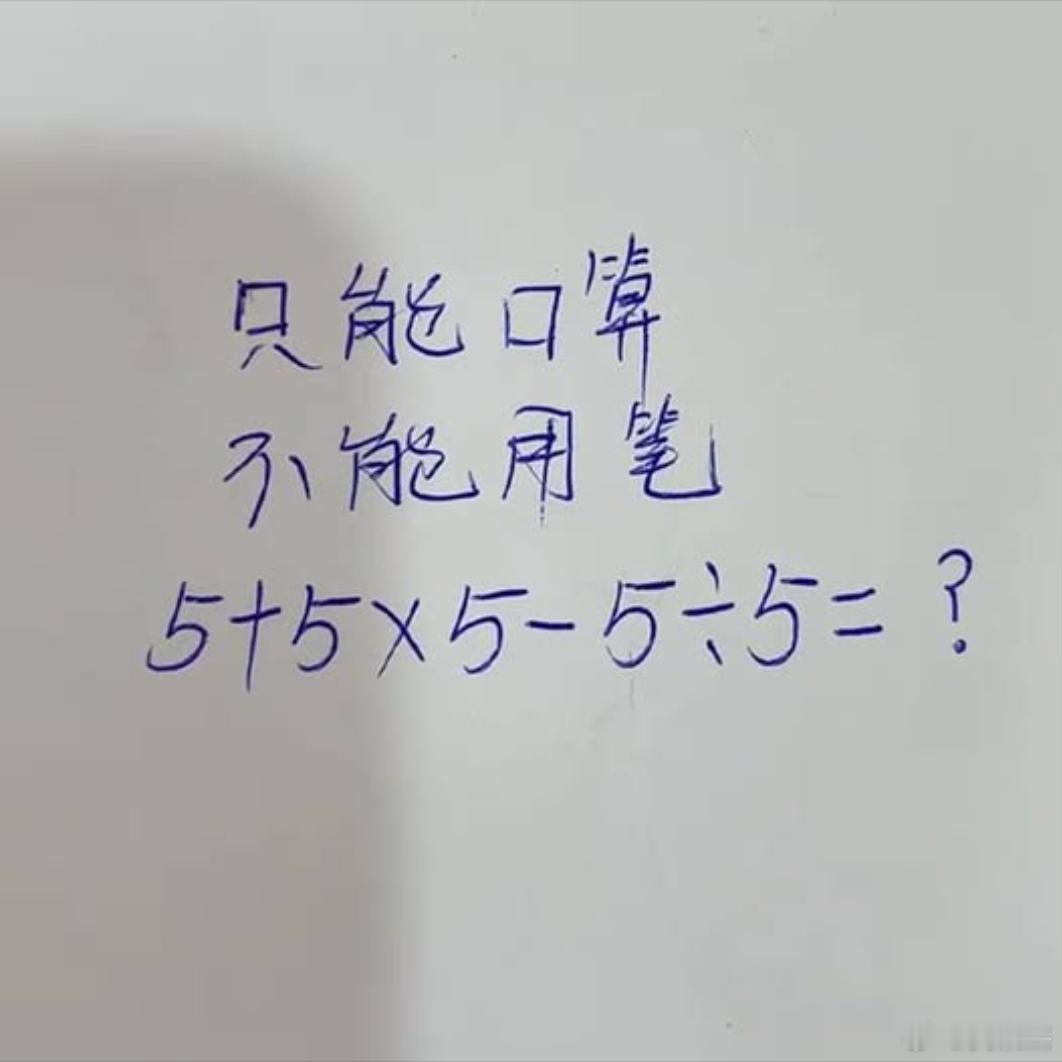 只能口算
不能用笔
5+5×5-5÷5=?